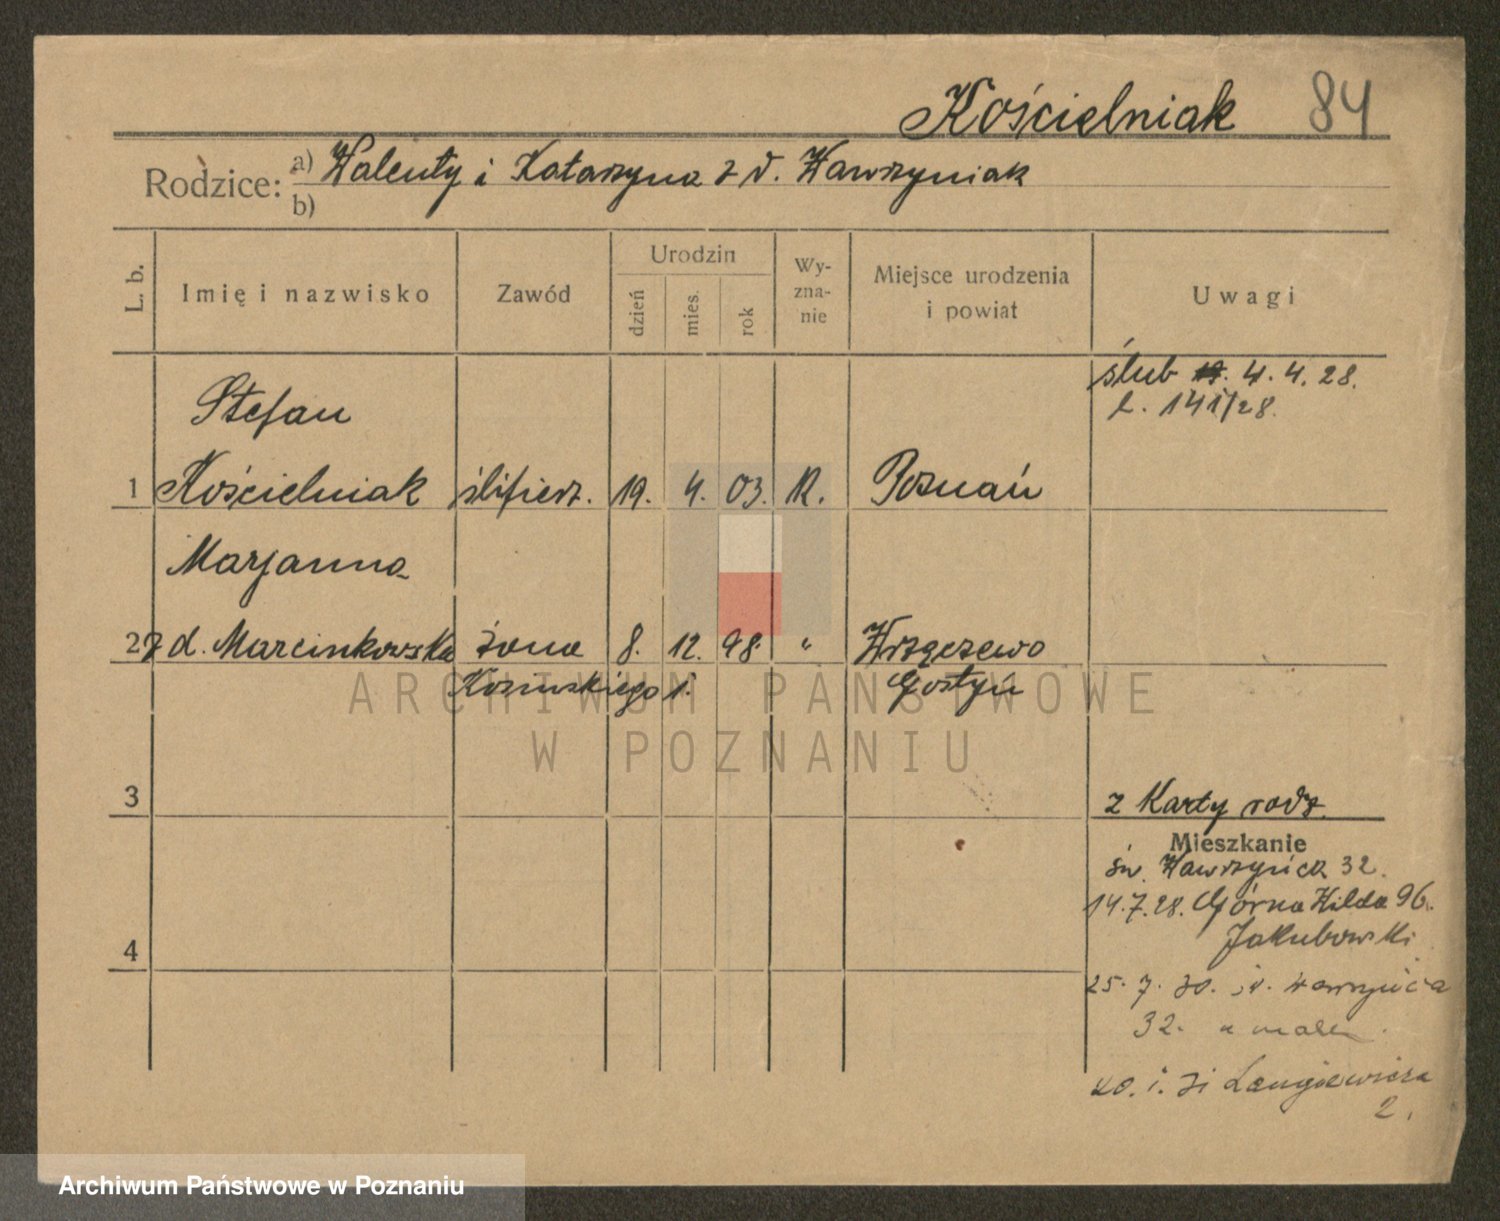 Kościelniak 84
Rodzice: a) Walenty i Katarzyna z d. Wawrzyniak
b)
L. b.
Imię i nazwisko
Zawód
Urodzin
dzień
mies.
rok
Wy-
zna-
nie
Miejsce urodzenia
i powiat
Uwagi
ślub 4. 4. 28.
L. 141/28.
Stefan
1 Kościelniak ślifierz. 19. 4. 03. R. Poznań
Marjanna
2 z d. Marcinkowska żona 8. 12. 98. " Wrzączewo
1. Gostyń
3
z Karty rodz.
Mieszkanie
św. Wawrzyńca 32.
14.7.28. Górna Wilda 96.
Jakubowski
4
25. 7. 30. św. Wawrzyńca
32. u
20. i. 31 Langiewicza
2.
ARCHIWUM PAŃSTWOWE
W POZNANIU
Archiwum Państwowe w Poznaniu